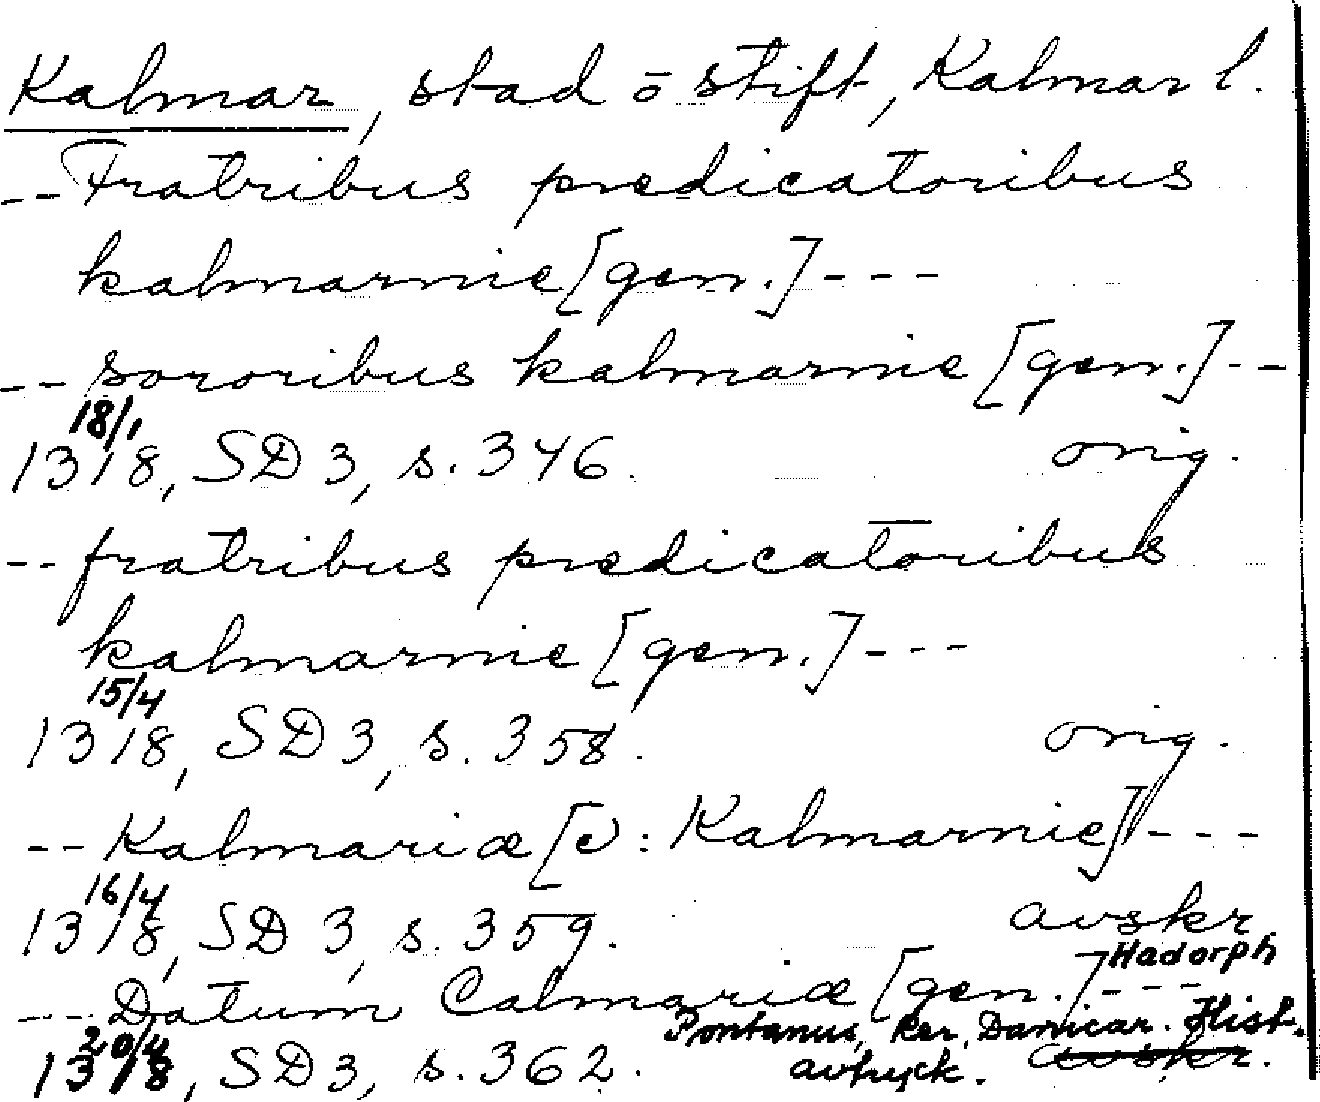 Kalmar, stad o stift, Kalmar l.
-- Fratribus predicatoribus
kalmarnie [gen.] ---
-- sororibus kalmarnie [gen.] --
18/1
1318, SD 3, s. 346. orig.
-- fratribus predicatoribus
kalmarnie [gen.] ---
15/4
1318, SD 3, s. 358. orig.
-- Kalmariæ [ɔ: Kalmarnie] ---
16/4
1318, SD 3, s. 359. avskr.
Hadorph
--- Datum Calmariæ [gen.] ---
20/4 Pontanus, Rer. Danicar. Hist.
1318, SD 3, s. 362. avtryck. avskr.